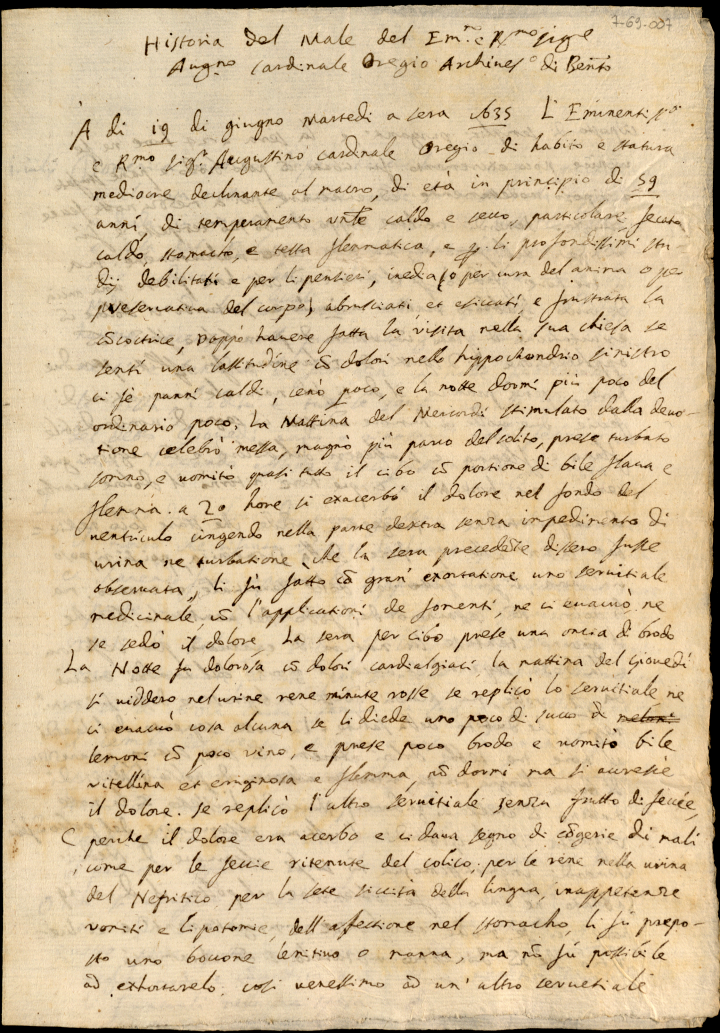 7-69-007
Historia del Male del Em.mo e R.mo sig.re
Aug.no Cardinale Oregio Archives.o di Bento
A di 19 di giugno Martedi a sera 1635 L'Eminentiss.o
e R.mo sig.r Augustino cardinale Oregio di habito e statura
mediocre declinante al macro, di età in principio di 59
anni, di temperamento caldo e secco, particolare fecato
caldo, stomacho, e testa flemmatica, e p. li profondissimi stu-
dij debilitati e per li pensieri, inedia (o per cura del anima o per
preservativa del corpo) abrusciati et esiccati, e frustrata la
cōcotrice, doppò havere fatta la visita nella sua chiesa se
sentì una lassitudine cō dolori nello hippochondrio sinistro
ci se panni caldi, cenò poco, e la notte dormì più poco del
ordinario poco; La Mattina del Mercordi stimulato dalla devo-
tione celebrò messa, magnò più parco del solito, prese turbato
sonno, e vomitò quasi tutto il cibo cō portione di bile flava e
flemma. a 20 hore si exacerbò il dolore nel fondo del
ventriculo cingendo nella parte dextra senza impedimento di
urina ne turbatione che la sera precedēte dissero fusse
observata, li fù fatto cō gran exortatione uno servitiale
medicinale, cō l'applicationi de fomenti, ne ci evacuò ne
se sedò il dolore. La sera per cibo prese una oncia di brodo
La Notte fu dolorosa cō dolori cardialgiaci, la mattina del Giovedi
si viddero nel urine rene minute rosse se replicò lo servitiale ne
ci evacuò cosa alcuna se li diede uno poco di succo di meloni
lemoni cō poco vino, e prese poco brodo e vomitò bile
vitellina et eruginosa e flemma, nō dormì ma si accresciè
il dolore. se replicò l'altro servitiale senza frutto di feccie,
perche il dolore era acerbo e ci dava segno di cōgerie di mali
come per le feccie ritenute del colico, per le rene nella urina
del Nefritico per la sete siccità della lingua, inappetenze
vomiti e lipotomie, dell'afectione nel stomacho, li fù prepo-
sto uno boccone lenitivo o manna, ma nō fù possibile
ad exhortarelo. cosi venessimo ad un'altro servetiale